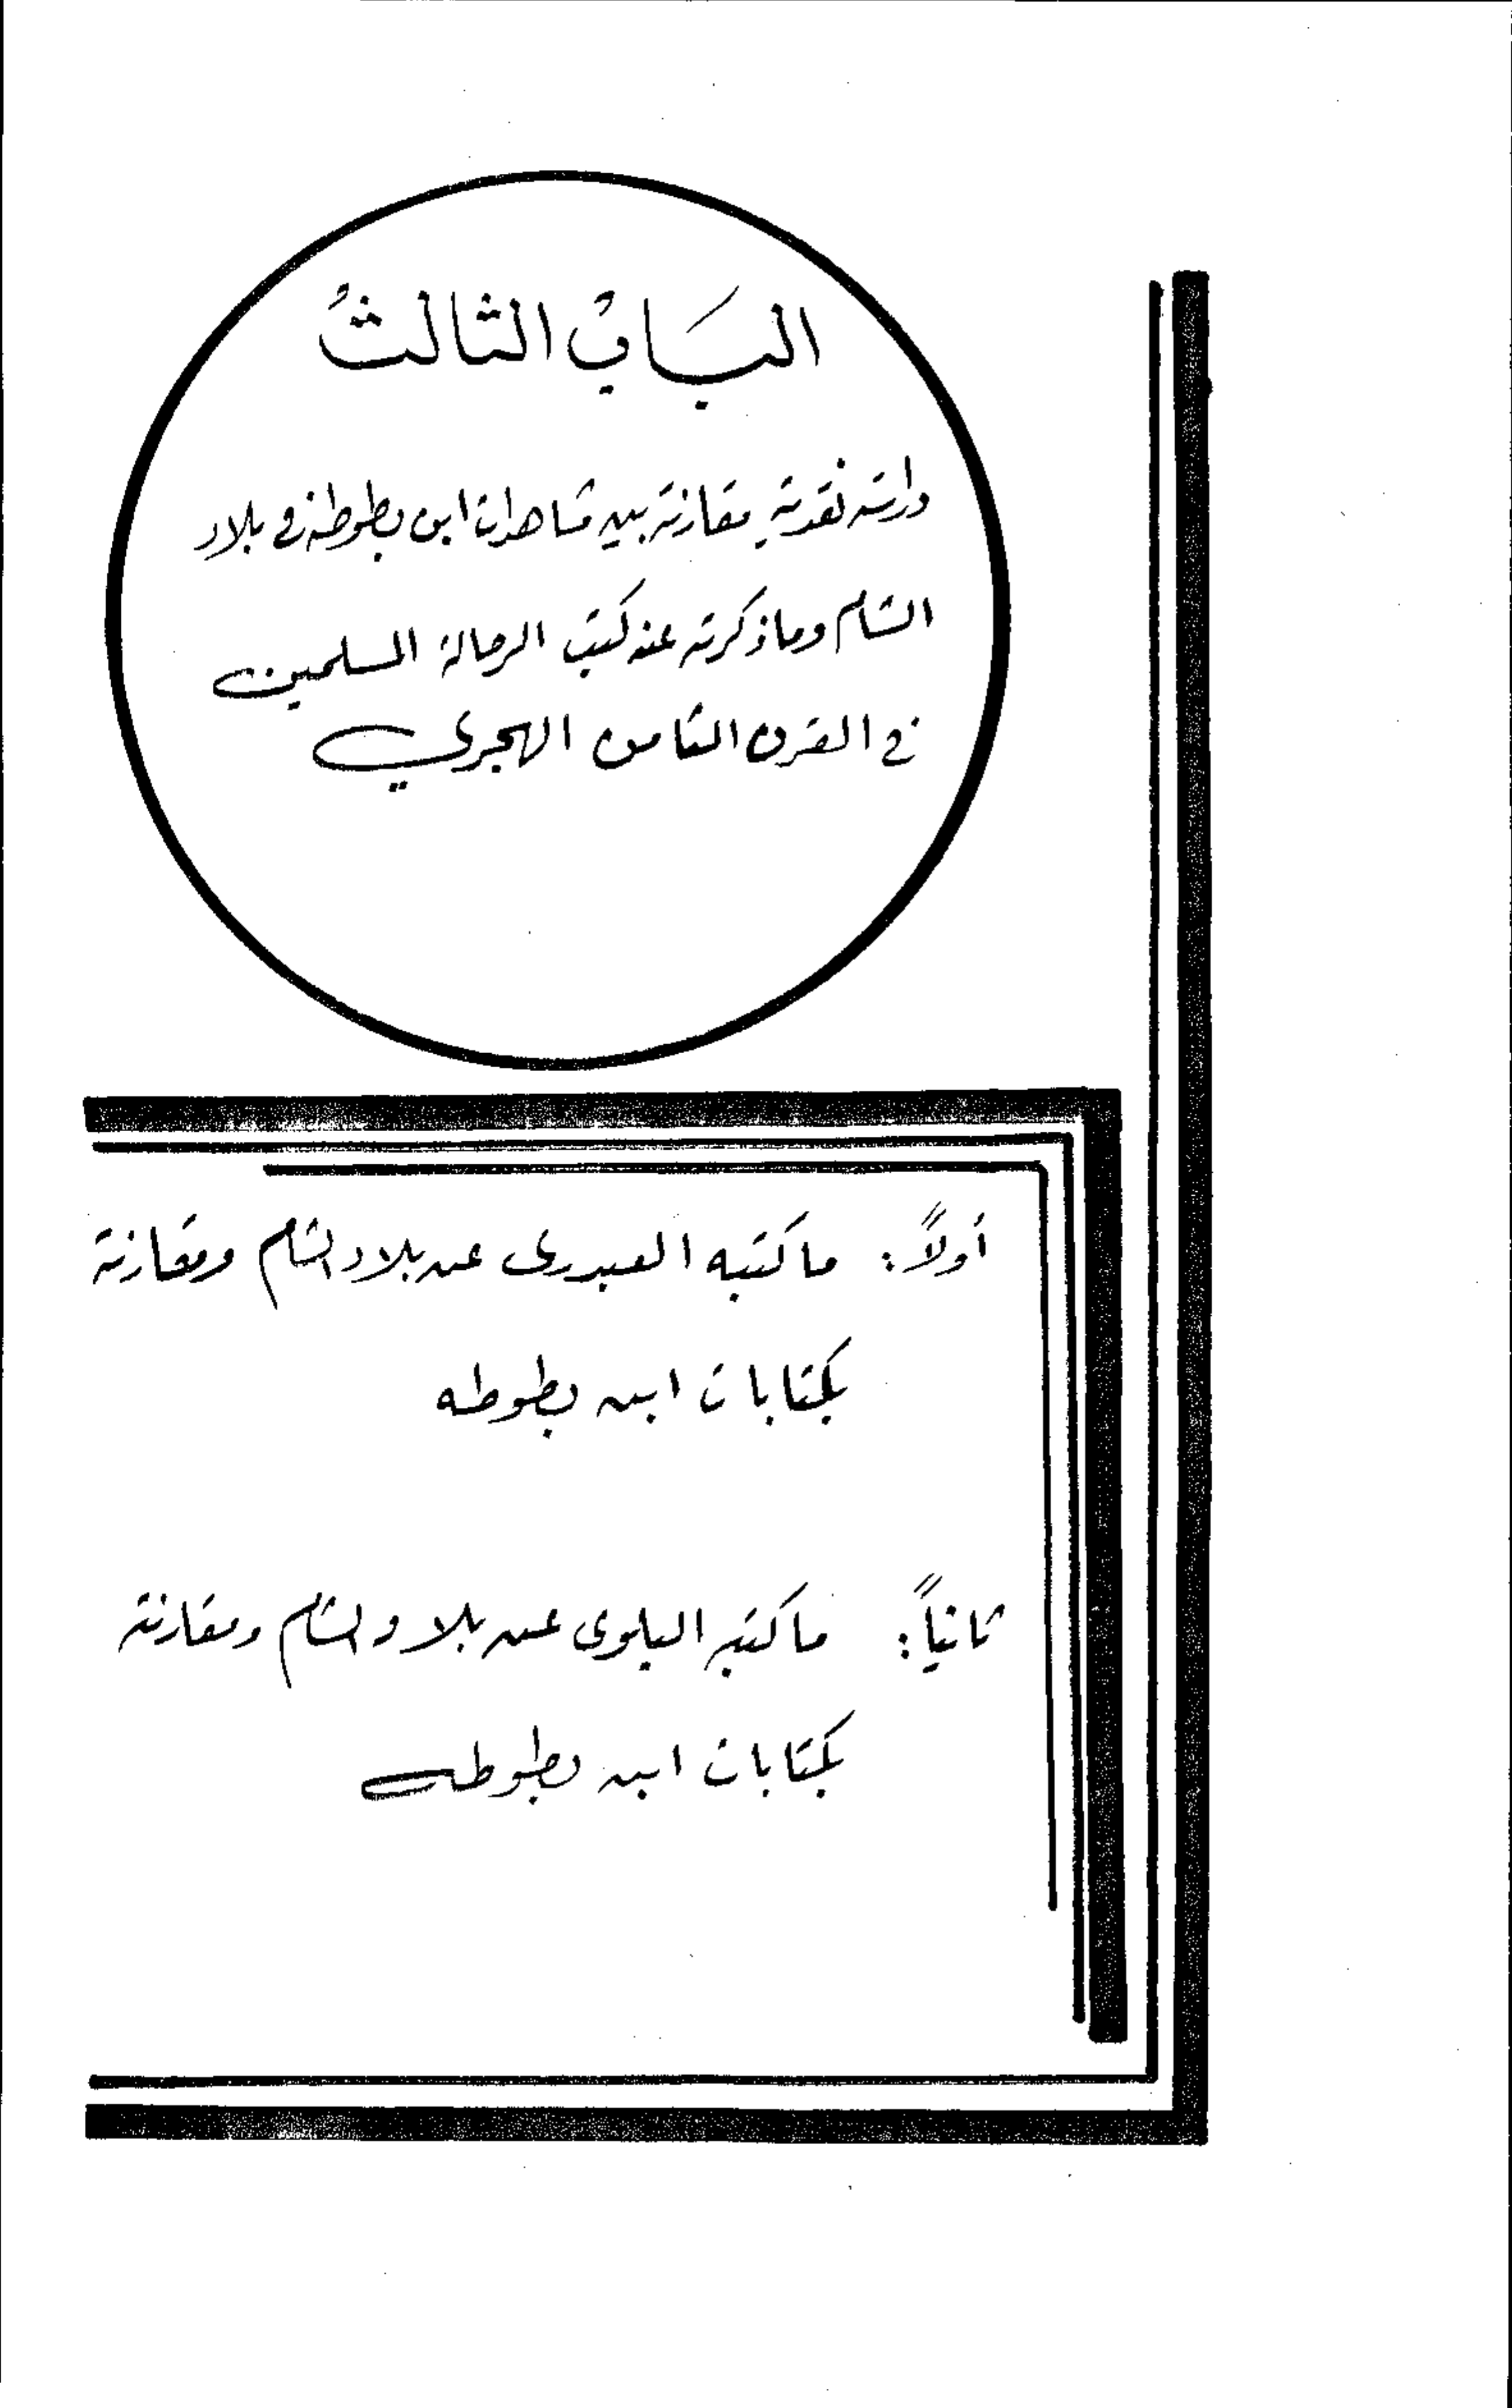 البَابُ الثالثُ
دراسة نقدية مقارنة بين مشاهدات ابن بطوطة في بلاد
الشام وما ذكرته عنه كتب الرحالة المسلمين
في القرن الثامن الهجري
أولاً: ما كتبه العبدرى عن بلاد الشام ومقارنة
بكتابات ابن بطوطه
ثانياً: ما كتبه البلوى عن بلاد الشام ومقارنته
بكتابات ابن بطوطه